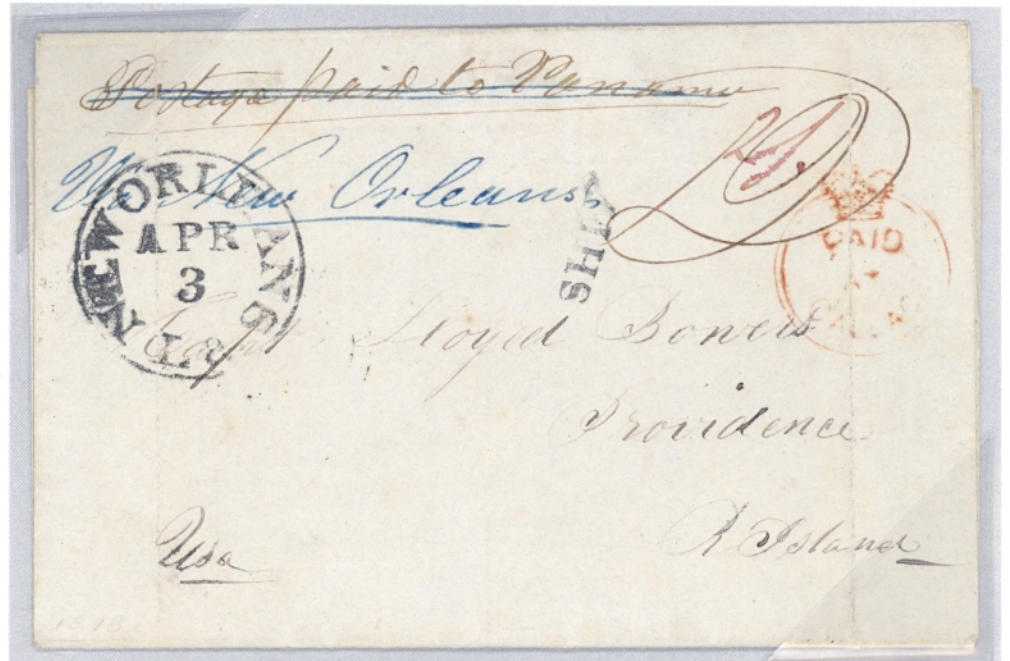 Postage paid to Panama
Via New Orleans
NEW ORLEANS La
APR
3
SHIP
PAID
Capt Lloyd Bowers
Providence
R Island
Usa